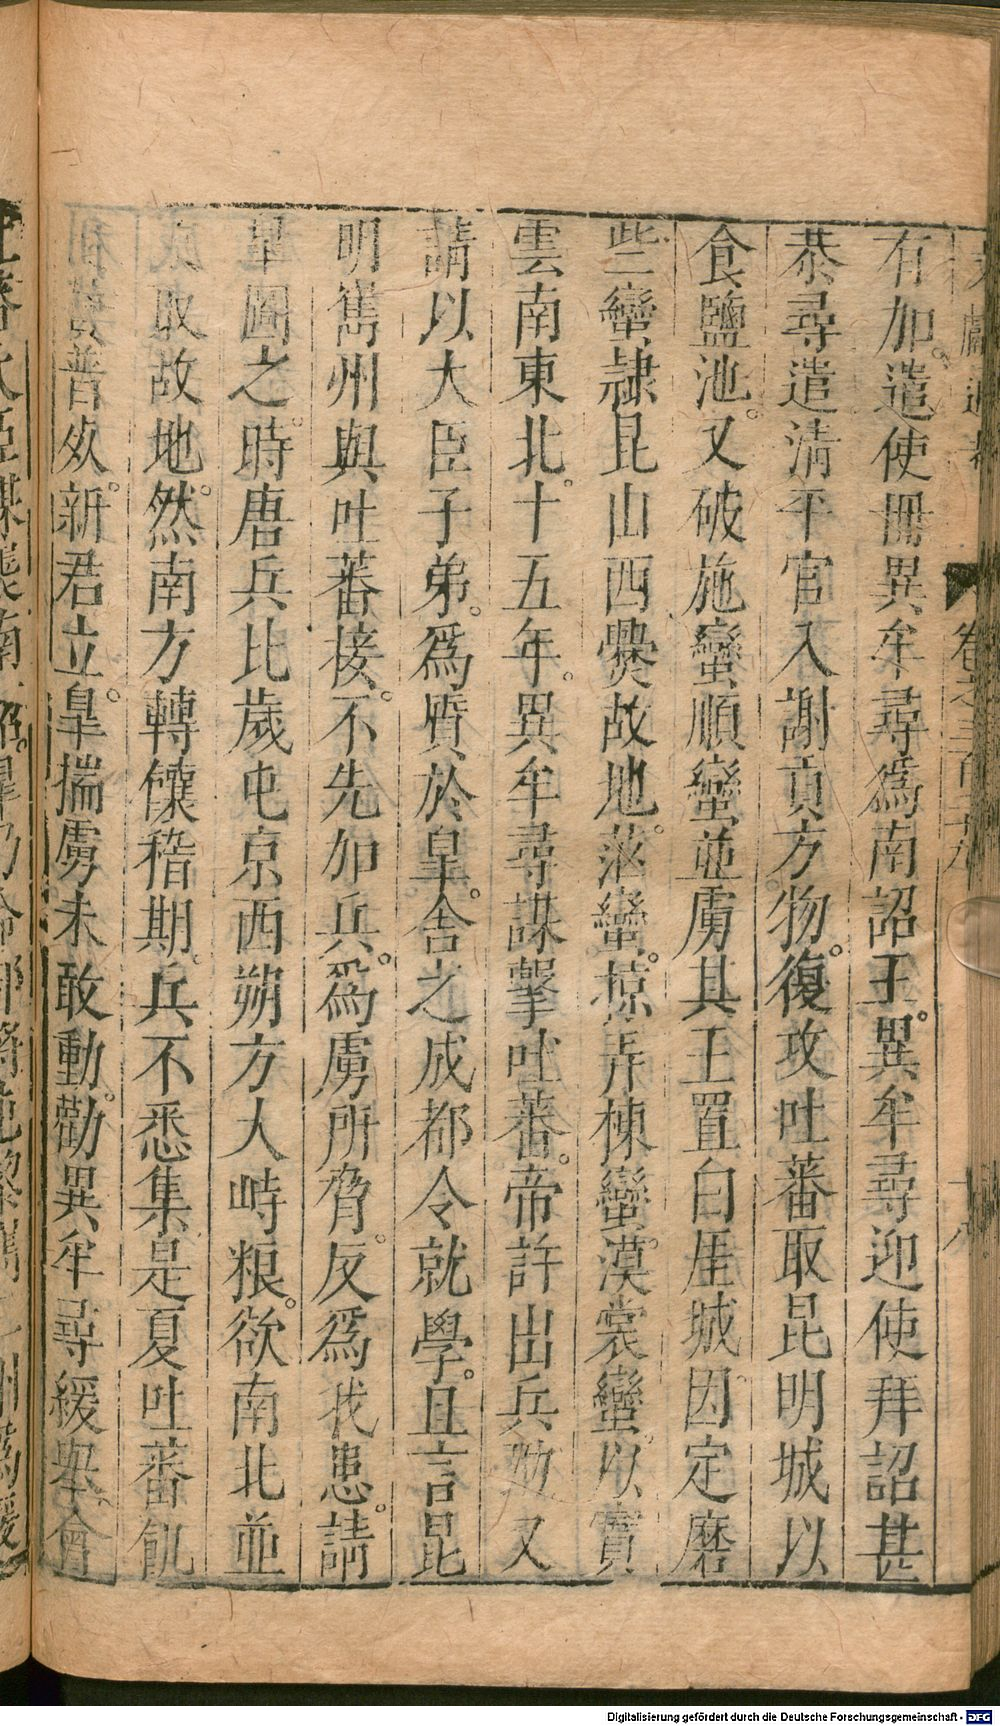 有加。遣使冊異牟尋爲南詔王。異牟尋迎使拜詔甚
恭尋遣清平官入謝貢方物。復攻吐蕃取昆明城以
食鹽池。又破施蠻順蠻並虜其王置白厓城。因定磨
些蠻隷昆山西爨故地。蠻。掠弄棟蠻。漠裳蠻。以實
雲南東北。十五年。異牟尋謀擊吐蕃。帝許出兵助又
請以大臣子弟。爲質於皐。舍之成都令就學。且言昆
明嶲州與吐蕃接。不先加兵。爲虜所脅。反爲我患。請
皐圖之。時唐兵比歲屯京西朔方大峙粮。欲南北並
取故地。然南方轉饟稽期。兵不悉集是夏吐蕃飢
普新君立。皐揣虜未敢動。勸異牟尋緩舉。會
卷之三百二十九
十八
Digitalisierung gefördert durch die Deutsche Forschungsgemeinschaft - DFG